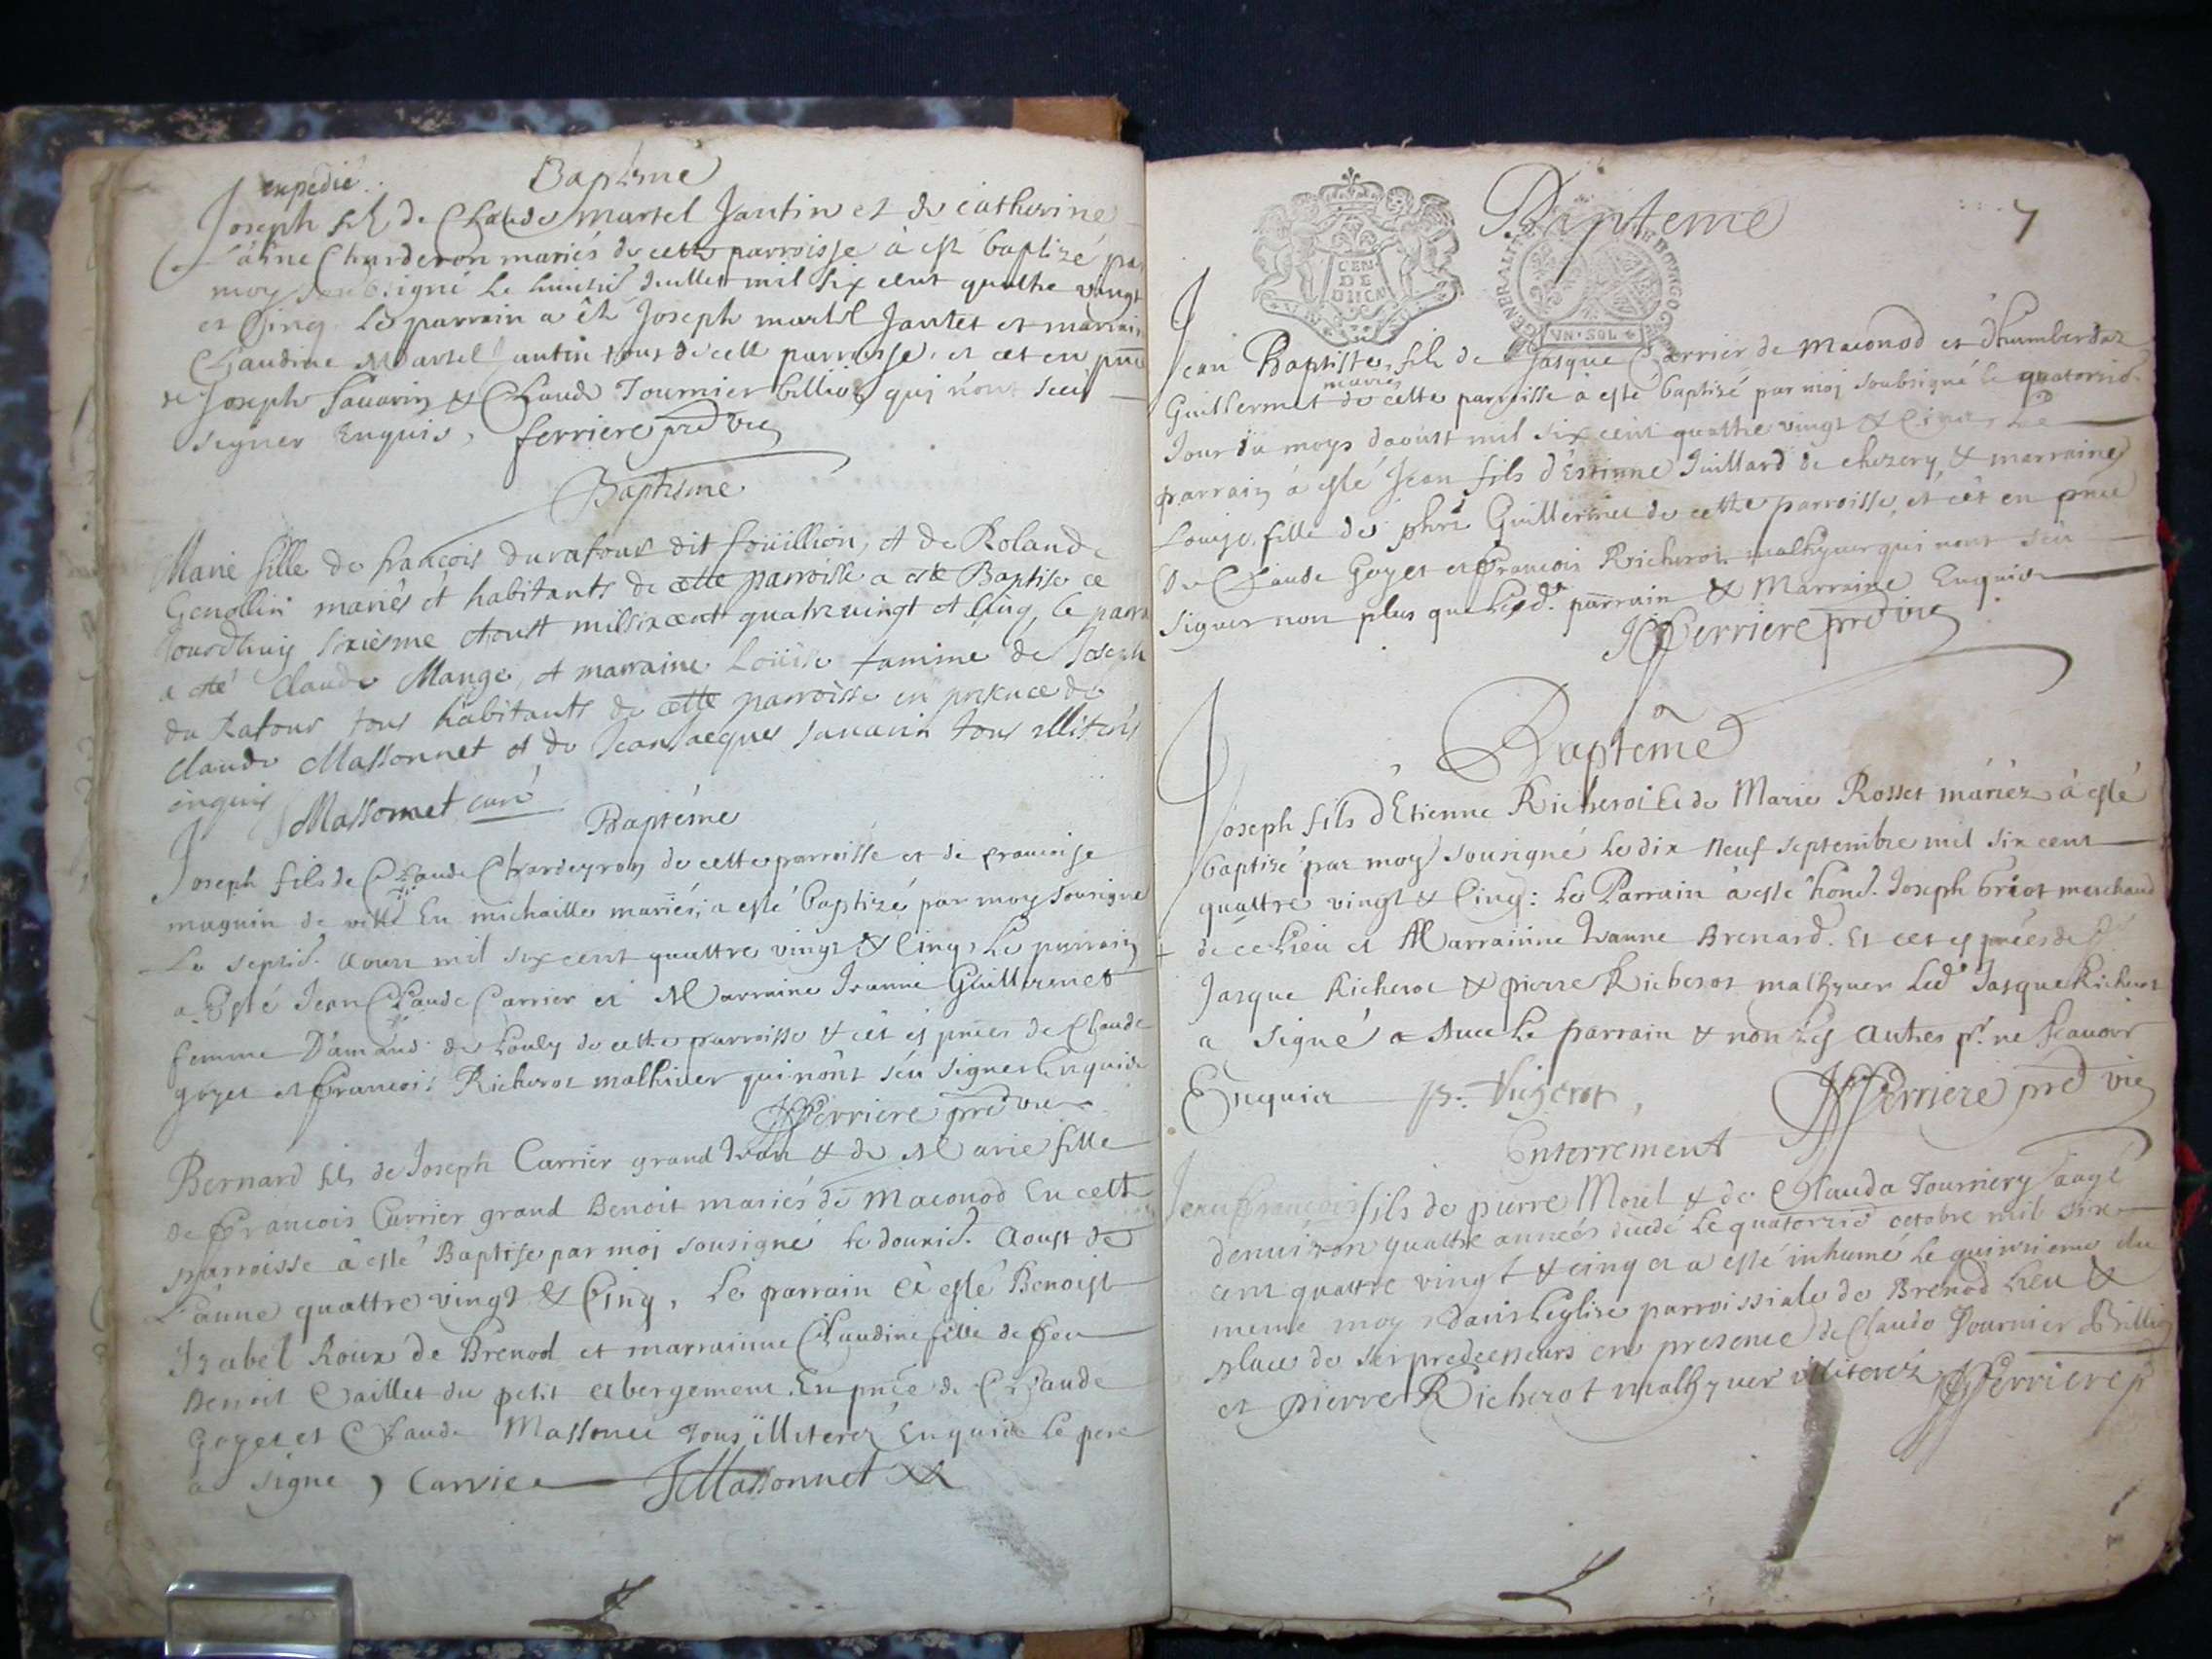 expedié
Baptême
Joseph fils de Claude Martel Jantin et de Catherine
Charderon mariés de cette parroisse à est baptizé par
moy soubsigné le Juillet mil six cent quattre vingt
et Cinq. Le parrain a été Joseph martel Jantet et marrain
Claudine Martel Jantin tous de cette parroisse. et cet en pnce
de Joseph Sauarin & Claude Tournier billion qui n'ont sceu
signer Enquis, ferriere pre vic
Baptisme
Marie fille de françois duratour dit fouillion, et de Rolande
Genollin mariés et habitants de cette parroisse a esté Baptisé ce
Jourdhuy sixiesme Aoust mil six cent quatre vingt et Cinq, le parra
a esté Claude Mange, et marraine Loüise famme de Joseph
du Ratour tous habitants de cette parroisse en presence de
Claude Massonnet et de Jean Jacques Sauarin tous illiterés
enquis JMassonnet curé
Baptéme
Joseph fils de Claude Chardeyron de cette parroisse et de francoise
maguin de ville En michaille mariés, a esté baptizé par moy sousigné
Le septie. aoust mil six cent quattre vingt & Cinq, Le parrain
a Esté Jean Claude Carrier et Marraine Jeanne Guillermet
femme D'amand de Louly de cette parroisse & cêt es pnces de Claude
goyet et francois Richerot malhiuer qui n'ont séu signer Enquis
JFerriere pre vic
Bernard fils de Joseph Carrier grand Jean & de Marie fille
de francois Carrier grand Benoit mariés de Maconod En cette
parroisse à esté Baptise par moi sousigné le douzie. Aoust de
L'anne quattre vingt & Cinq, Le parrain à esté Benoist
Izabel Roux de Brenod et marrainne Claudine fille de feu
Benoit Caillet du petit Abergement. En pnce de Claude
Goyet et Claude Massonet Tous illiterez Enquis Le pere
a signé, Carrier JMassonnet
7
Bapteme
GENERALITE DE BOURGOGNE
CEN
DE
DUCA
VN SOL
Jean Baptiste fils de Jasque Carrier de Maconod et d'humberdaz
mariés
Guillermet de cette parroisse à esté baptizé par moj soubsigné le quatorzie.
Jour du moys daoust mil six cent quattre vingt & Cinq, Le
parrain à esté Jean fils d'Estinne Juillard de chezery, & marraine
Louise fille de phre Guillermet de cette parroisse, et cêt en pnce
De Claude Goyet et francois Richerot malhyuer qui nont séu
signer non plus que Lesd. parrain & Marraine Enquis
JFerriere pre vic
Baptême
Joseph fils d'Etienne Richerot & de Marie Rosset máriéz à esté
baptizé par moy sousigné Le dix neuf septembre mil six cent
quattre vingt & Cinq: Le Parrain à esté hond. Joseph briot marchand
de ce Lieu et Marrainne Jeanne Brenard. Et cet es pnces de
Jasque Richerot & pierre Richerot malhyuer Led. Jasque Richerot
a signé Auec Le parrain & non Les autres pr. ne scauoir
Enquis JFerriere pre vic
Enterrement
Jean françois fils de pierre Morel & de Clauda Tourniery aagé
denuiron quattre années decedé Le quatorzie octobre mil six
cent quattre vingt & cinq et a esté inhumé Le quinzieme du
meme moy dans Leglise parroissiale de Brenod Lieu &
place de ses predecesseurs en presence de Claude Tournier Billion
et pierre Richerot malhyuer illiterez JFerriere p